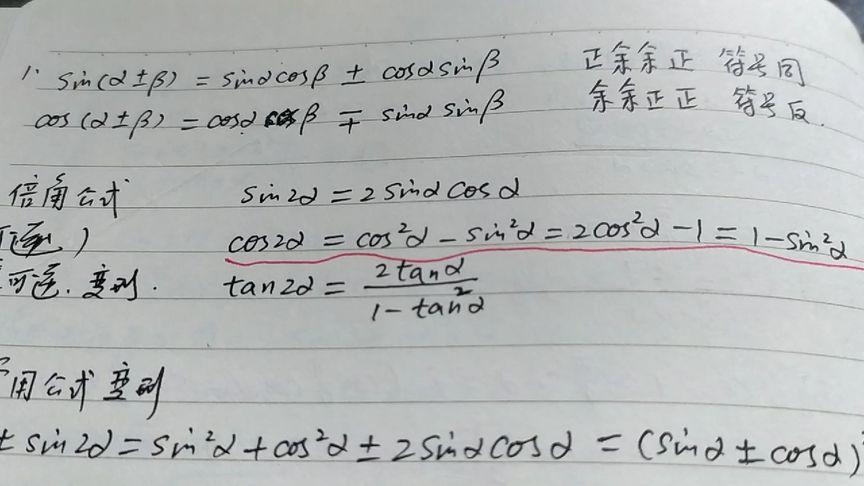 1. sin(α±β) = sinαcosβ ± cosαsinβ 正余余正 符号同
cos(α±β) = cosα cosβ ∓ sinα sinβ 余余正正 符号反.
倍角公式 sin2α = 2sinαcosα
) cos2α = cos²α - sin²α = 2cos²α - 1 = 1 - sin²α
可逆. 变形. tan2α = 2tanα / 1 - tan²α
用公式变形
± sin2α = sin²α + cos²α ± 2sinαcosα = (sinα ± cosα)